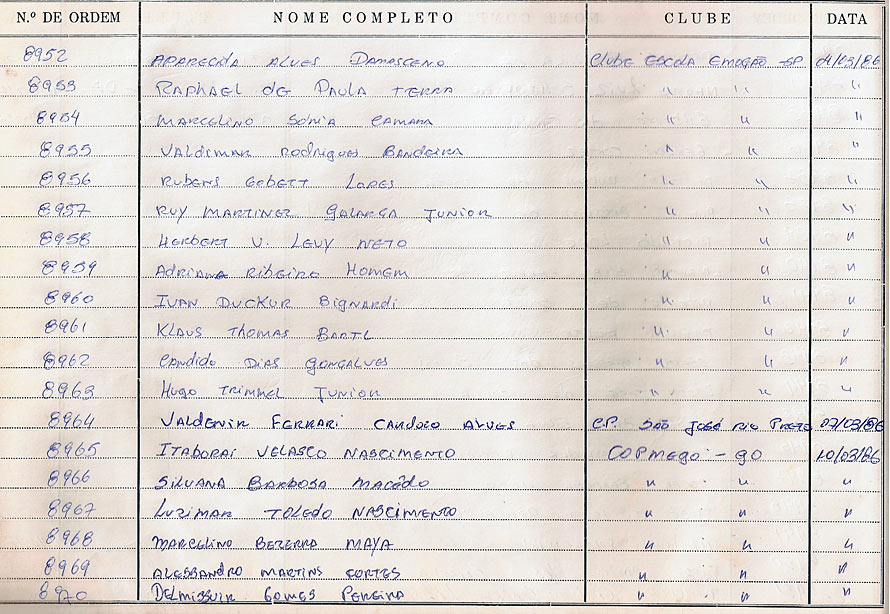 N.º DE ORDEM NOME COMPLETO CLUBE DATA
8952 APARECIDA ALVES DAMASCENO Clube ESCOLA EMOÇÃO -SP 04/03/86
8953 RAPHAEL de PAULA TERRA " " "
8954 MARCELINO SONIA CAMARA " " "
8955 VALDIMAR RODRIGUES BANDEIRA " " "
8956 RUBENS GEBETT LOPES " " "
8957 RUY MARTINEZ GALARÇA JUNIOR " " "
8958 HERBERT V. LEVY NETO " " "
8959 ADRIANA RIBEIRO HOMEM " " "
8960 IVAN DUCKUR BIGNARDI " " "
8961 KLAUS THOMAS BARTL " " "
8962 CANDIDO DIAS GONÇALVES " " "
8963 HUGO TRIMMEL JUNIOR " " "
8964 VALDENIR FERRARI CARDOSO ALVES C.P. SÃO JOSÉ RIO PRETO 07/03/86
8965 ITABORAI VELASCO NASCIMENTO COPMEGO - GO 10/03/86
8966 SILVANA BARBOSA MACÊDO " " "
8967 LUZIMAR TOLEDO NASCIMENTO " " "
8968 MARCELINO BEZERRA MAYA " " "
8969 ALESSANDRO MARTINS CORTES " " "
8970 DELMISSUIR GOMES PEREIRA " " "